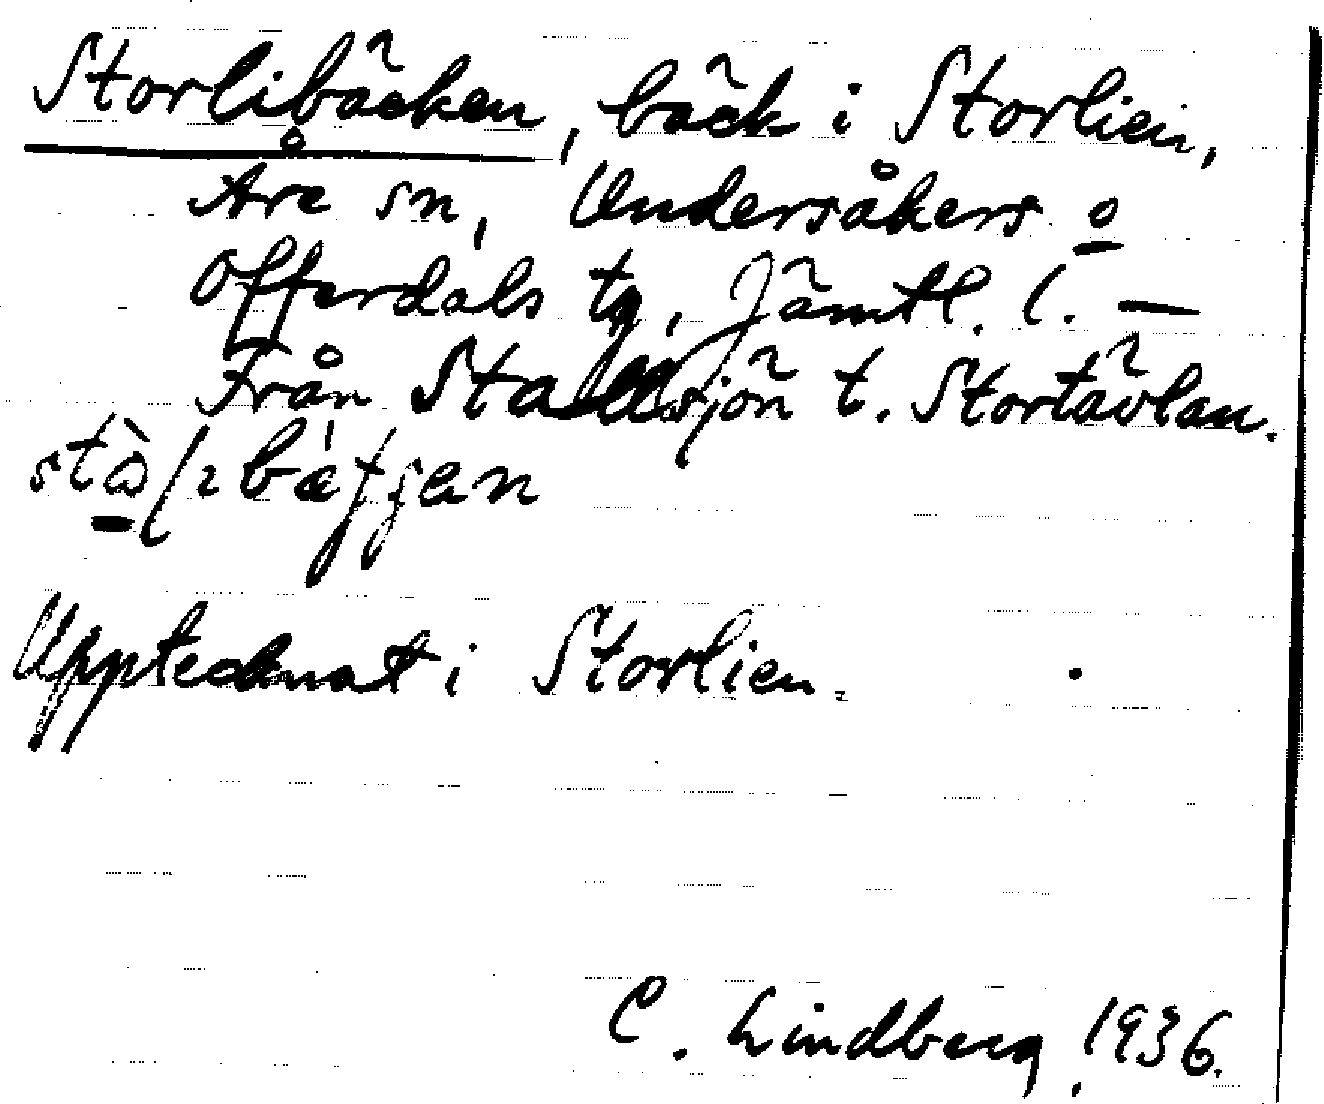 Storlibäcken, bäck i Storlien,
Åre sn, Undersåkers o
Offerdals tg, Jämtl. l. —
Från sjön t. Stortävlan.
Upptecknat i Storlien.
C. Lindberg, 1936.